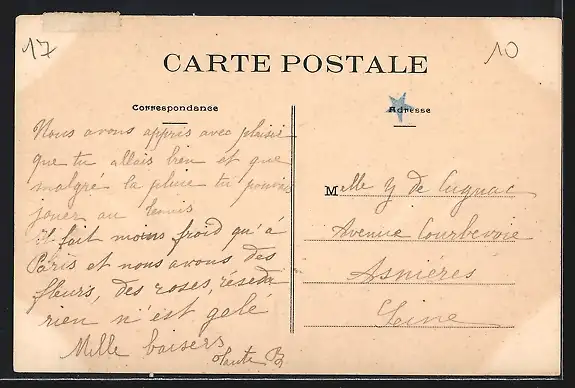 17
10
CARTE POSTALE
Correspondance
Adresse
Nous avons appris avec plaisir
que tu allais bien et que
malgré la pluie tu pouvais
jouer au tennis
il fait moins froid qu'à
Paris et nous avons des
fleurs, des roses, réséda
rien n'est gelé
Mille baisers
Mlle Y de Lugnac
Avenue Courbevoie
Asnières
Seine